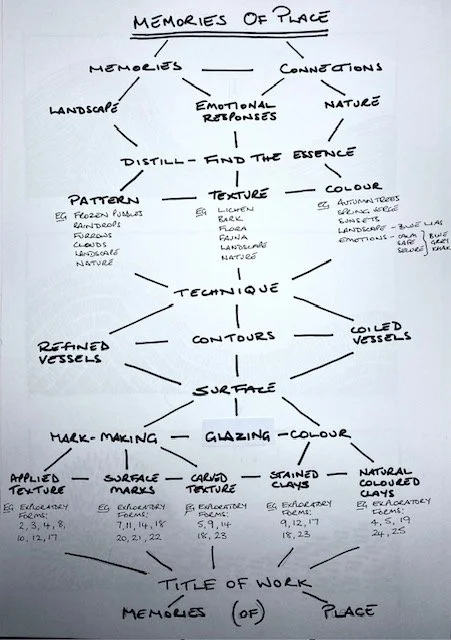 MEMORIES OF PLACE
MEMORIES
CONNECTIONS
LANDSCAPE
EMOTIONAL
RESPONSES
NATURE
DISTILL - FIND THE ESSENCE
PATTERN
EG FROZEN PUDDLES
RAINDROPS
FURROWS
CLOUDS
LANDSCAPE
NATURE
TEXTURE
EG LICHEN
BARK
FLORA
FAUNA
LANDSCAPE
NATURE
COLOUR
EG AUTUMN TREES
SPRING VERGE
SUNSETS
LANDSCAPE - BLUE LIAS
EMOTIONS - CALM
SAFE
SECURE
BLUE
GREY
KHAKI
TECHNIQUE
REFINED
VESSELS
CONTOURS
COILED
VESSELS
SURFACE
MARK-MAKING
GLAZING
COLOUR
APPLIED
TEXTURE
EG EXPLORATORY
FORMS:
2, 3, 4, 8,
10, 12, 17
SURFACE
MARKS
EG EXPLORATORY
FORMS:
7, 11, 14, 18
20, 21, 22
CARVED
TEXTURE
EG EXPLORATORY
FORMS:
5, 9, 14
18, 23
STAINED
CLAYS
EG EXPLORATORY
FORMS:
9, 12, 17
18, 23
NATURAL
COLOURED
CLAYS
EG EXPLORATORY
FORMS:
4, 5, 19
24, 25
TITLE OF WORK
MEMORIES (OF) PLACE